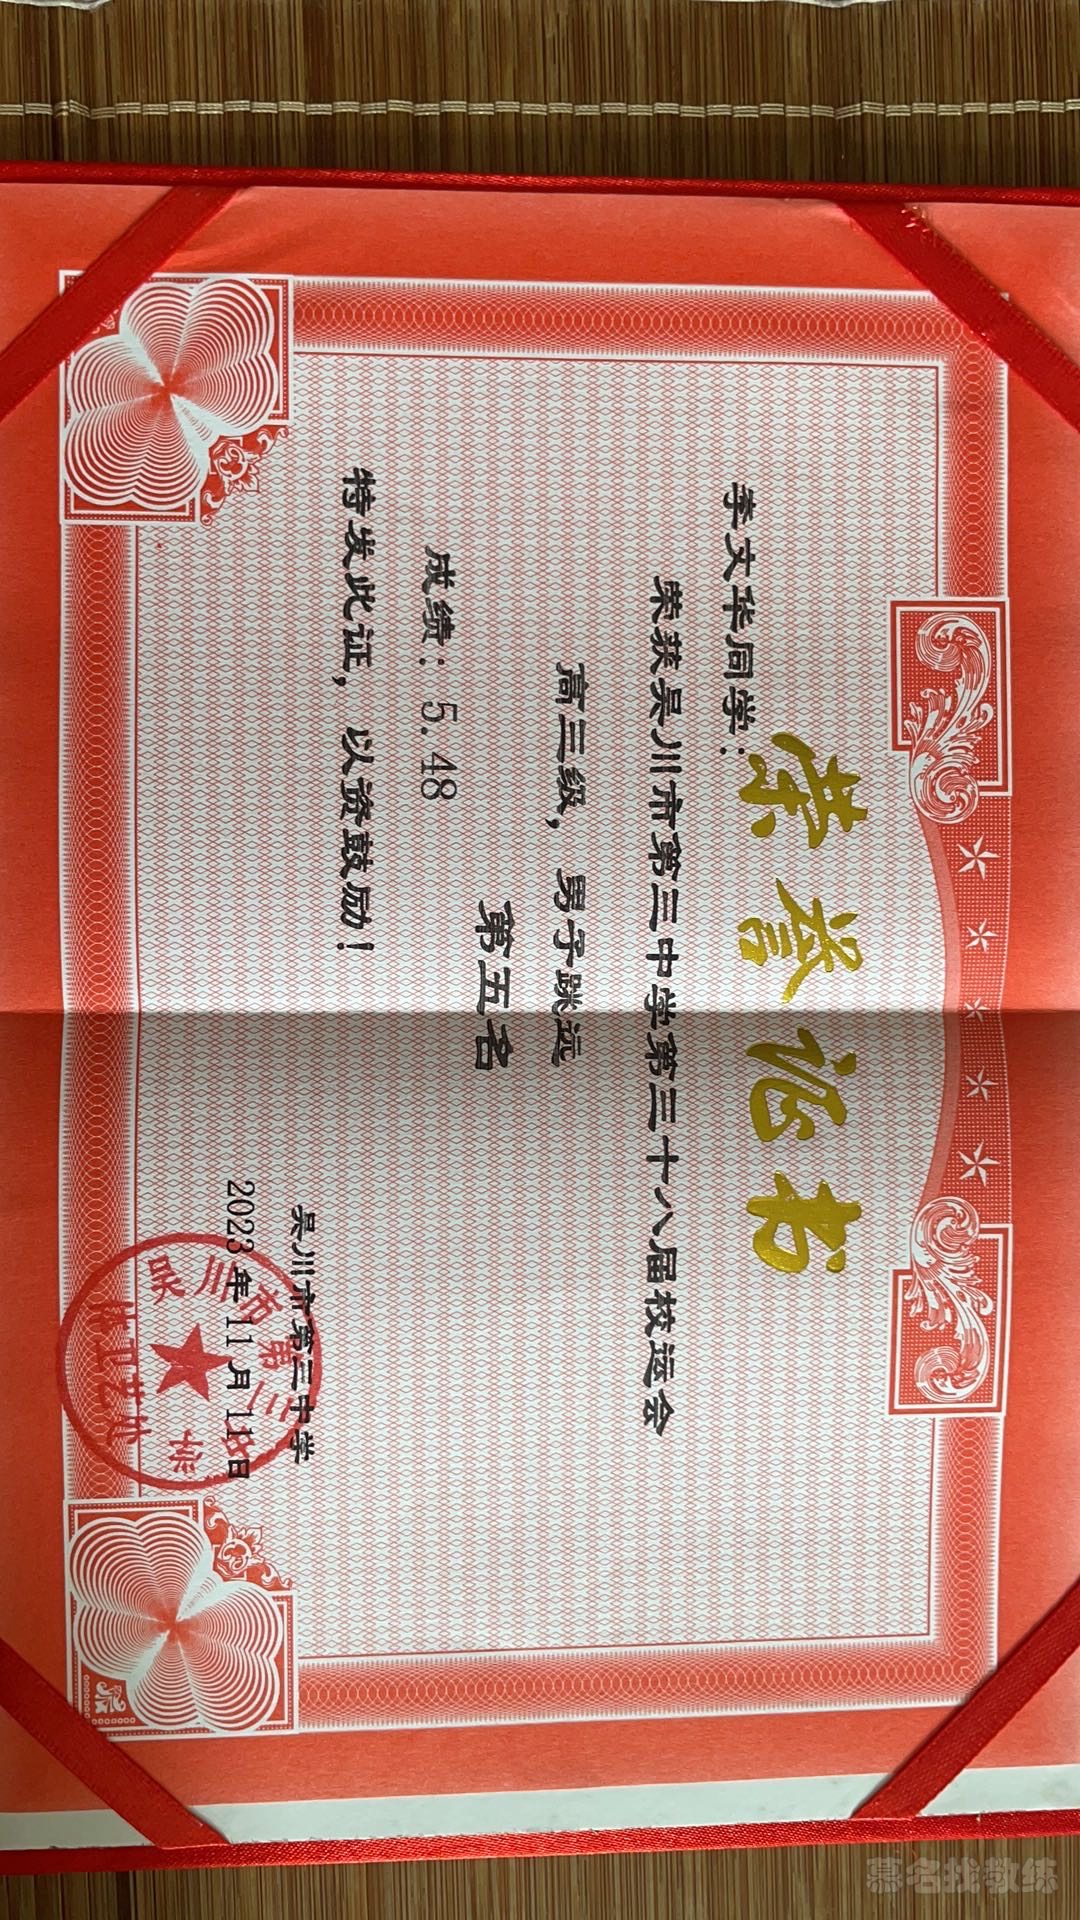 荣誉证书
李文华同学:
荣获吴川市第三中学第三十八届校运会
高三级，男子跳远
第五名
成绩: 5.48
特发此证，以资鼓励!
吴川市第三中学
2023年11月11日
吴川市第三中学
体卫艺办
慕名找教练